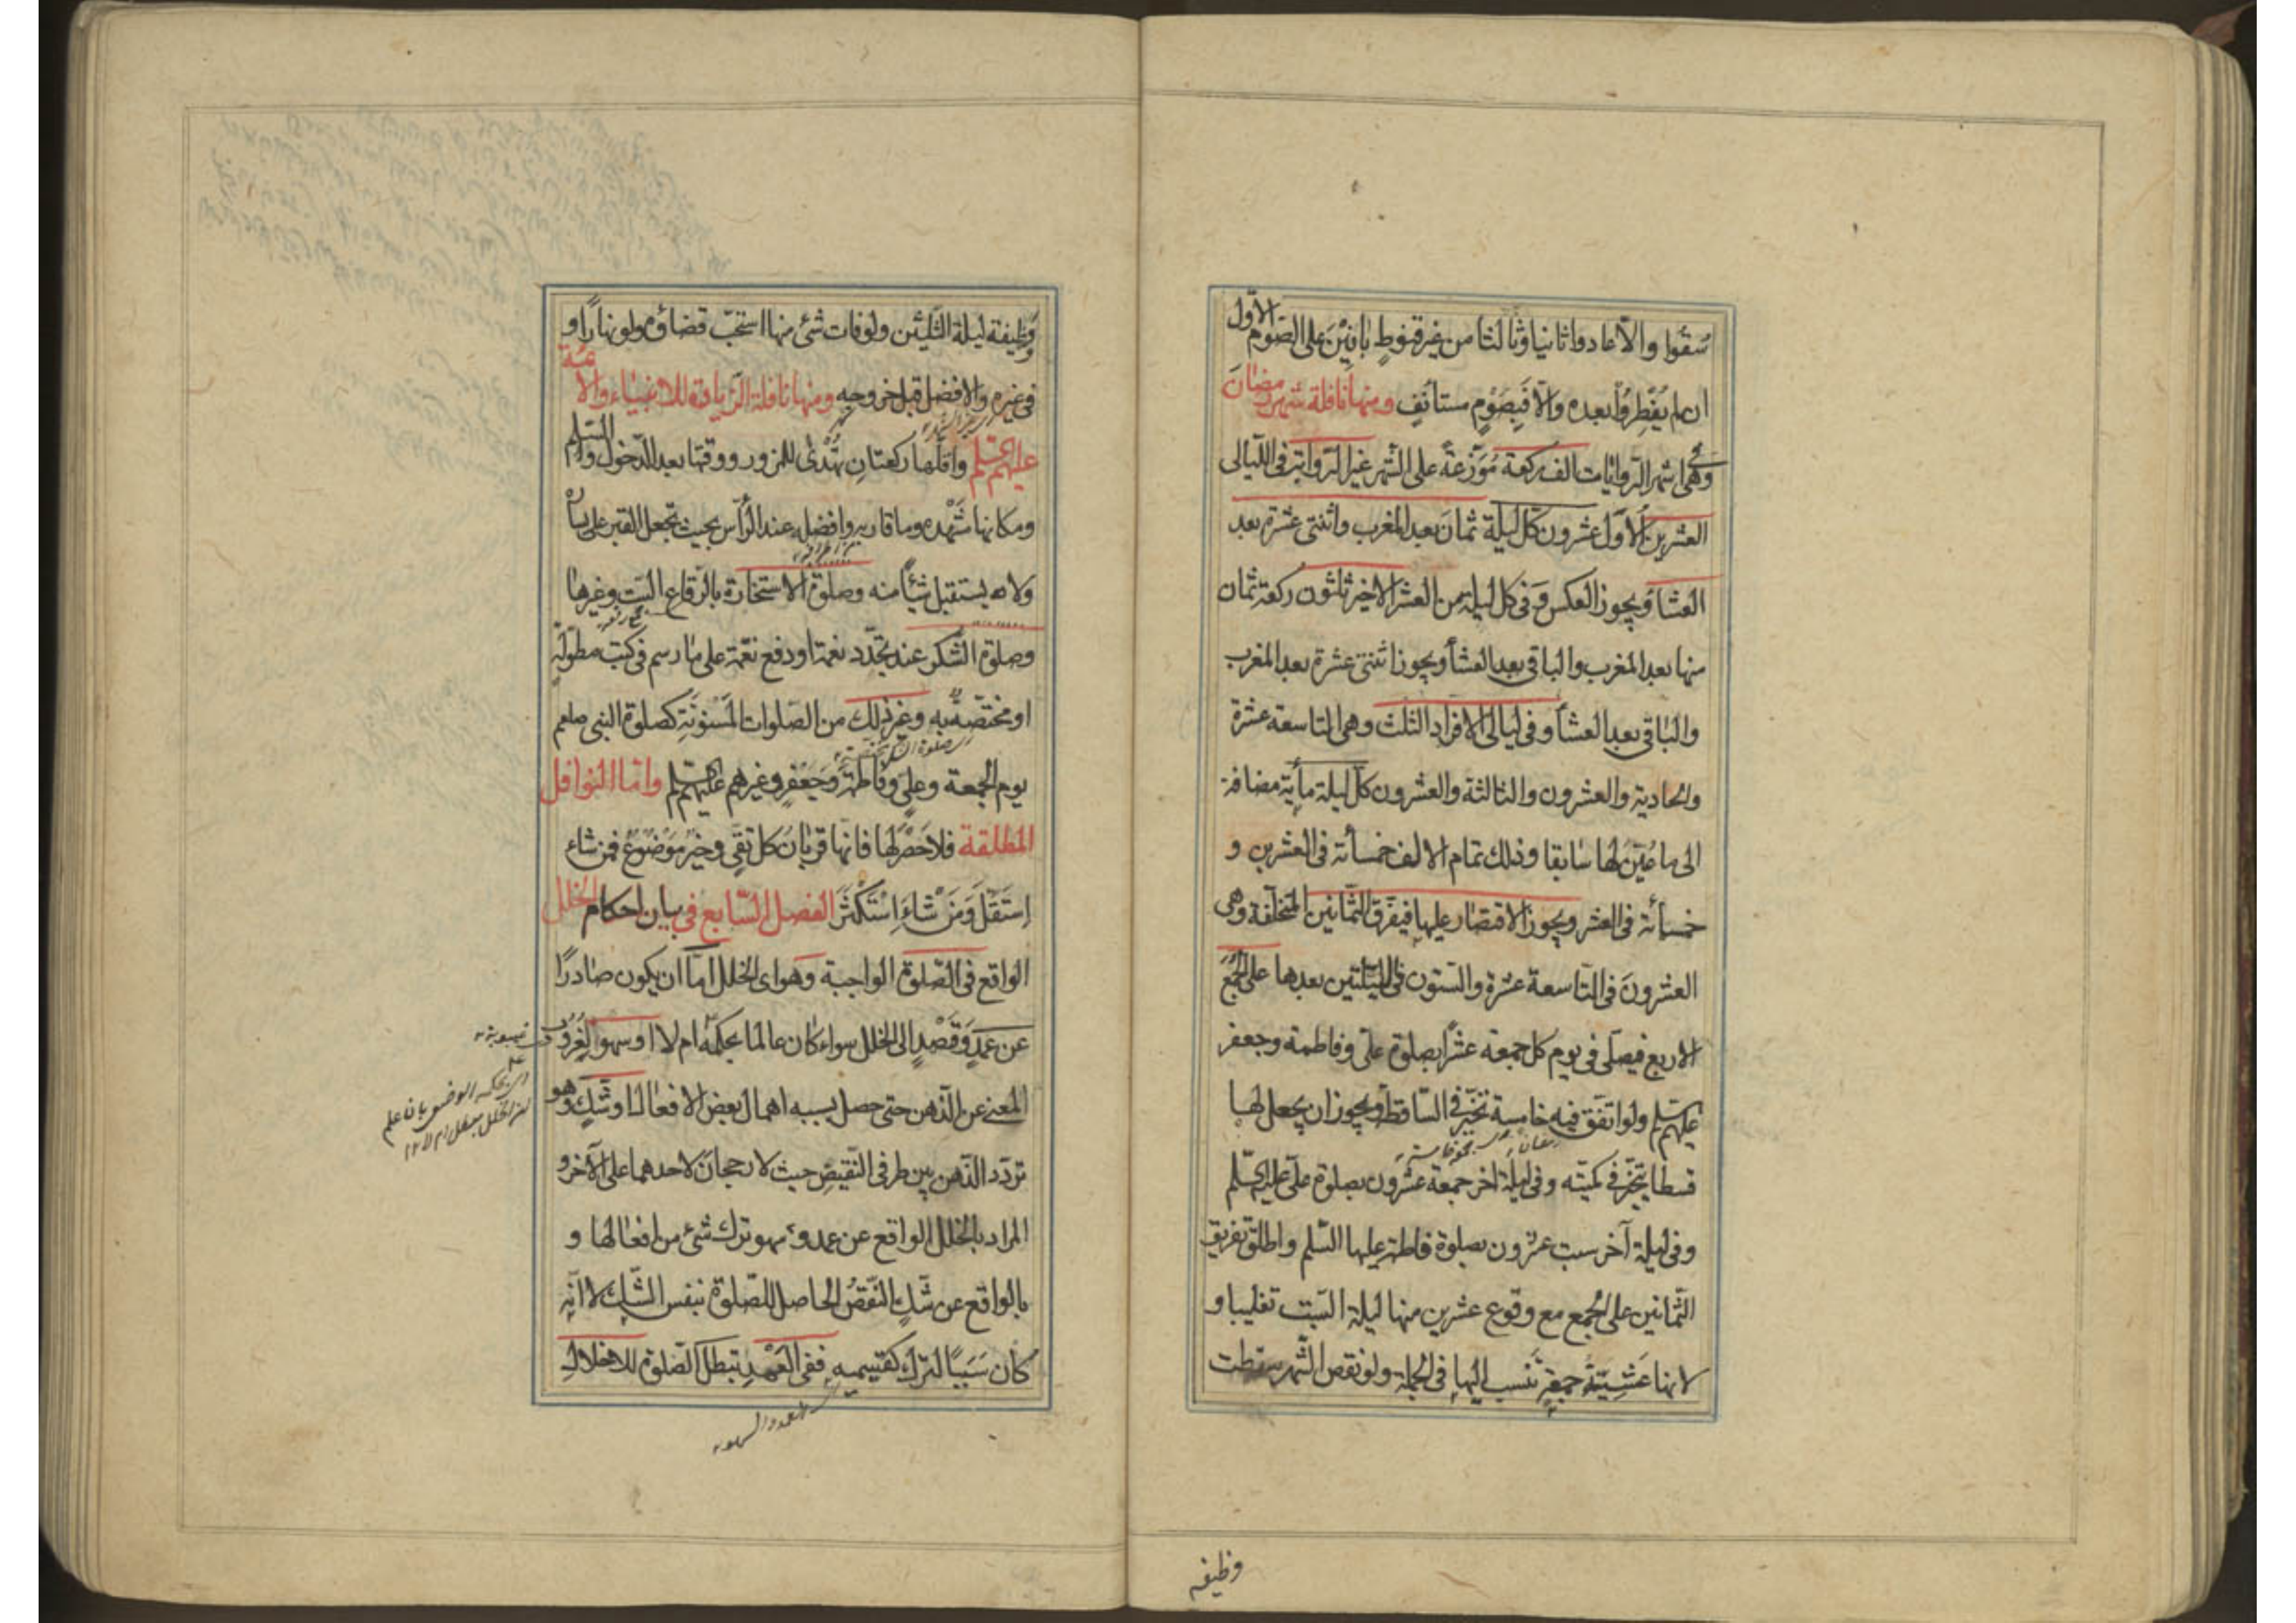 سُقوا والّا عادوا ثانيا وثالثا من غير قنوطٍ بانِيْنَ على الصّوم الاوّل
ان لم يُفطِرُوْا بعده والّا فَبِصَوْمٍ مستأنَفٍ ومنها نافلة شهر رمضان
وهى فى اشهر الرّوايات الف ركعة مُوَزّعةً على الشّهر غير الرّواتب فى اللّيالى
العشرين الاوّل عشرون كلّ ليلة ثمان بعد المغرب واثنتى عشرة بعد
العشاء ويجوز العكس وَ فى كلّ ليلة من العشر الاخير ثلثون ركعة ثمان
منها بعد المغرب والباقى بعد العشأ ويجوز اثنتى عشرة بعد المغرب
والباقى بعد العشأ وفى ليالى الافراد الثلث وهى التاسعة عشرة
والحادية والعشرون والثالثة والعشرون كلّ ليلة مأية مضافة
الى ما عُيّن لها سابقا وذلك تمام الالف خمسأئة فى العشرين و
خمسأئة فى العشر ويجوز الاقتصار عليها فيفرّق الثّمانين المتخلّفة وهى
العشرونَ فى التّاسعة عشرة والستّون فى اللّيلتين بعدها على الجُمَعَ
الاربع فيصلّى فى يوم كلّ جمعة عشرًا بصلوة علىّ وفاطمة وجعفر
عليهم السّلم ولو اتّفق فيه خامسة تخيّر فى السّاقط ويجوز ان يجعل لها
قسطا يتخيّر فى كميّته وفى ليلة اخر جمعة عشرون بصلوة علىّ عليه السّلم
وفى ليلة آخر سبت عشرون بصلوة فاطمة عليها السّلم واطلق تفريق
الثّمانين على الجمع مع وقوع عشرين منها ليلة السّبت تغليبا و
لانها عَشِيّةُ جمعةٍ تُنسب اليها فى الجملة ولو نقص الشّهر سقطت
وظيفه
وَظيفة ليلة الثّلثين ولو فات شئ منها استحبّ قضاؤه ولو نهارًا و
فى غيره والافضل قبل خروجه ومنها نافلة الزّيارة للانبياء والائمّة
عليهم السّلم واقلّها ركعتان تُهْدٰى للمزور ووقتها بعد الدّخول والسّلم
ومكانها مَشْهَده وما قاربه وافضله عند الرّأس بحيث تجعل القبر على يساره
ولا يستقبل شيأً منه وصلوة الاستخارة بالرّقاع الستّ وغيرها
وصلوة الشّكر عند تجدّد نعمة او دفع نقمة على ما رسم فى كتب مطوّلةٍ
او مختصّة به وغير ذلك من الصّلوات المَسْنونَةِ كصلوة النبى صلعم
يوم الجمعة وعلىّ وفاطمة وَجَعْفرٍ وغيرهم عليهم السّلم وامّا النوافل
المطلقة فلا حَصْرَ لها فانّها قربان كلّ تقىٍّ وخيرُ مَوْضُوْعٍ فمن شاء
اِسْتَقَلَّ وَمَنْ شٰاءَ اِسْتَكْثَرَ الفصل السّابع فى بيان احكام الخلل
الواقع فى الصّلوة الواجبة وَهو اى الخلل امّا ان يكون صٰادرًا
عن عَمدٍ وَقَصْدٍ الى الخلل سواء كٰان عالما بحكمه ام لا او سهوٍ لِعُزُوْب
المعنى عن الذّهن حتى حصل بسببه اهمال بعض الافعال او شَكٍّ وهو
تردّد الذّهن بين طرفى النّقيض حيث لا رجحان لاحدهما على الآخر و
المراد بالخلل الواقع عن عمد وسهو ترك شئ من افعالها و
بالواقع عن شكٍّ النّقصُ الحاصل للصّلوة بنفس الشّك لا انّه
كٰان سَبَبًا لترك كقسيميه ففى العَمْدِ تبطل الصّلوة للاخلال